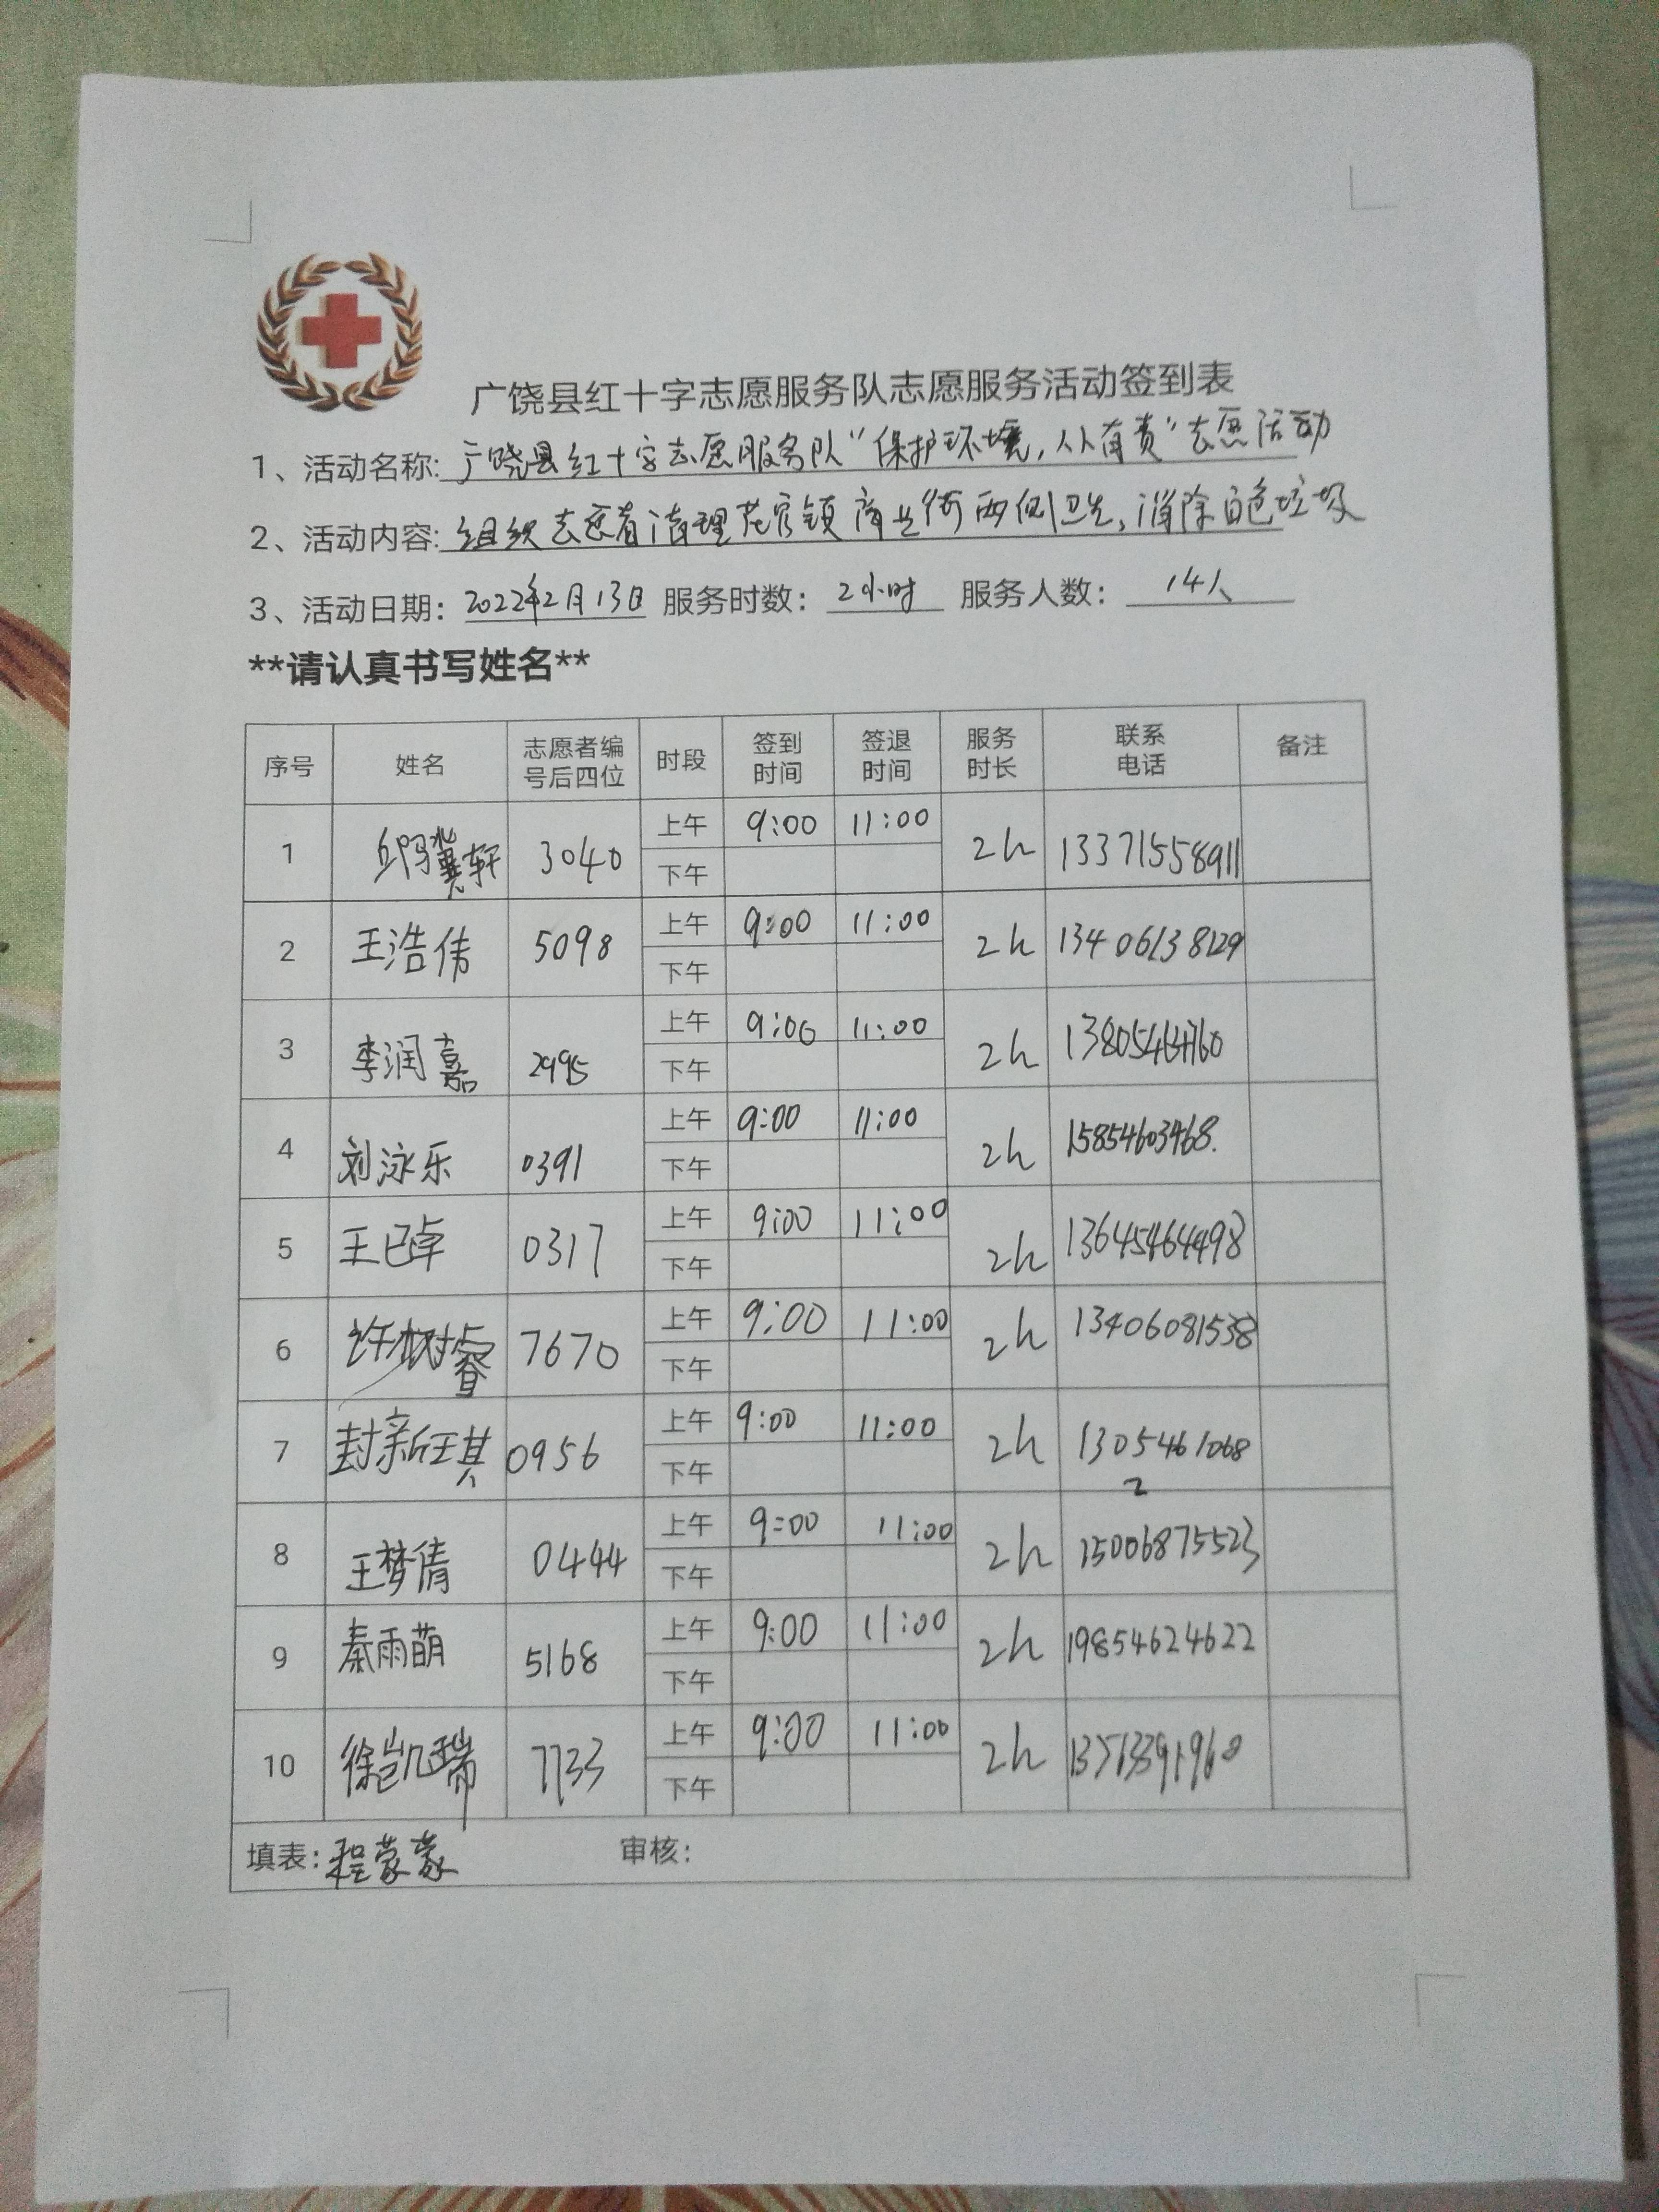 广饶县红十字志愿服务队志愿服务活动签到表
1、活动名称: 广饶县红十字志愿服务队“保护环境,人人有责”志愿活动
2、活动内容: 组织志愿者清理花官镇商业街两侧卫生,消除白色垃圾
3、活动日期: 2022年2月13日 服务时数: 2小时 服务人数: 14人
**请认真书写姓名**
序号 姓名 志愿者编号后四位 时段 签到时间 签退时间 服务时长 联系电话 备注
1 邱骥轩 3040 上午 9:00 11:00 2h 13371558911
下午
2 王浩伟 5098 上午 9:00 11:00 2h 13406138129
下午
3 李润嘉 2995 上午 9:00 11:00 2h
下午
4 刘泳乐 0391 上午 9:00 11:00 2h 15854603468.
下午
5 王已卓 0317 上午 9:00 11:00 2h 13645464498
下午
6 许树睿 7670 上午 9:00 11:00 2h 13406081538
下午
7 封新琪 0956 上午 9:00 11:00 2h 1305461068
2
下午
8 王梦倩 0444 上午 9:00 11:00 2h 15006875523
下午
9 秦雨萌 5168 上午 9:00 11:00 2h 19854624622
下午
10 徐凯瑞 7733 上午 9:00 11:00 2h
下午
填表: 程蒙蒙 审核: